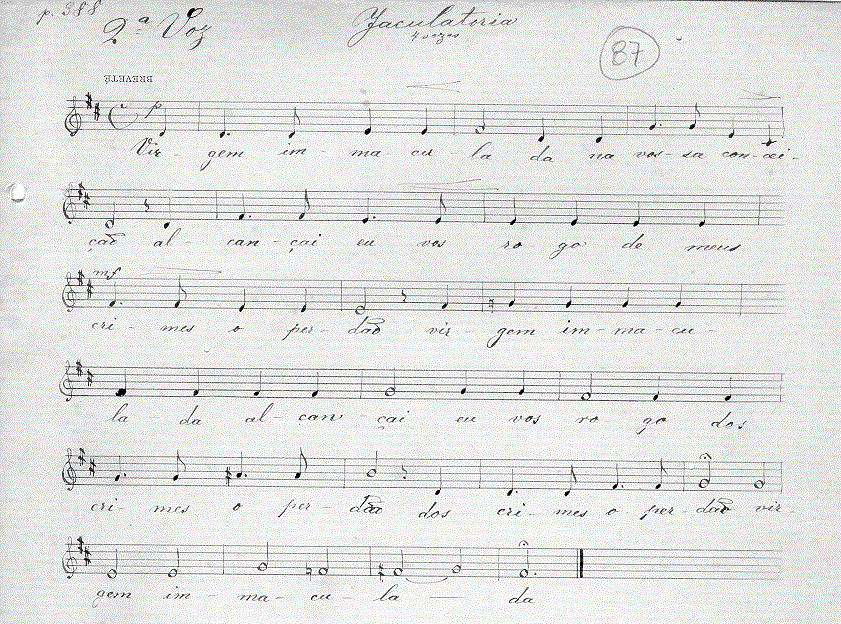 p. 388
2ª Voz
Jaculatoria
4 vozes
87
BREVETÉ
p
Vir - gem im - ma - cu - la da na vos - sa con - cei -
ção al - can - çai eu vos ro go de meus
mf
cri - mes o per - dão vir - gem im - ma - cu -
la da al - can - çai eu vos ro - go dos
cri - mes o per - dão dos cri - mes o per - dão vir -
gem im - ma - cu - la — da